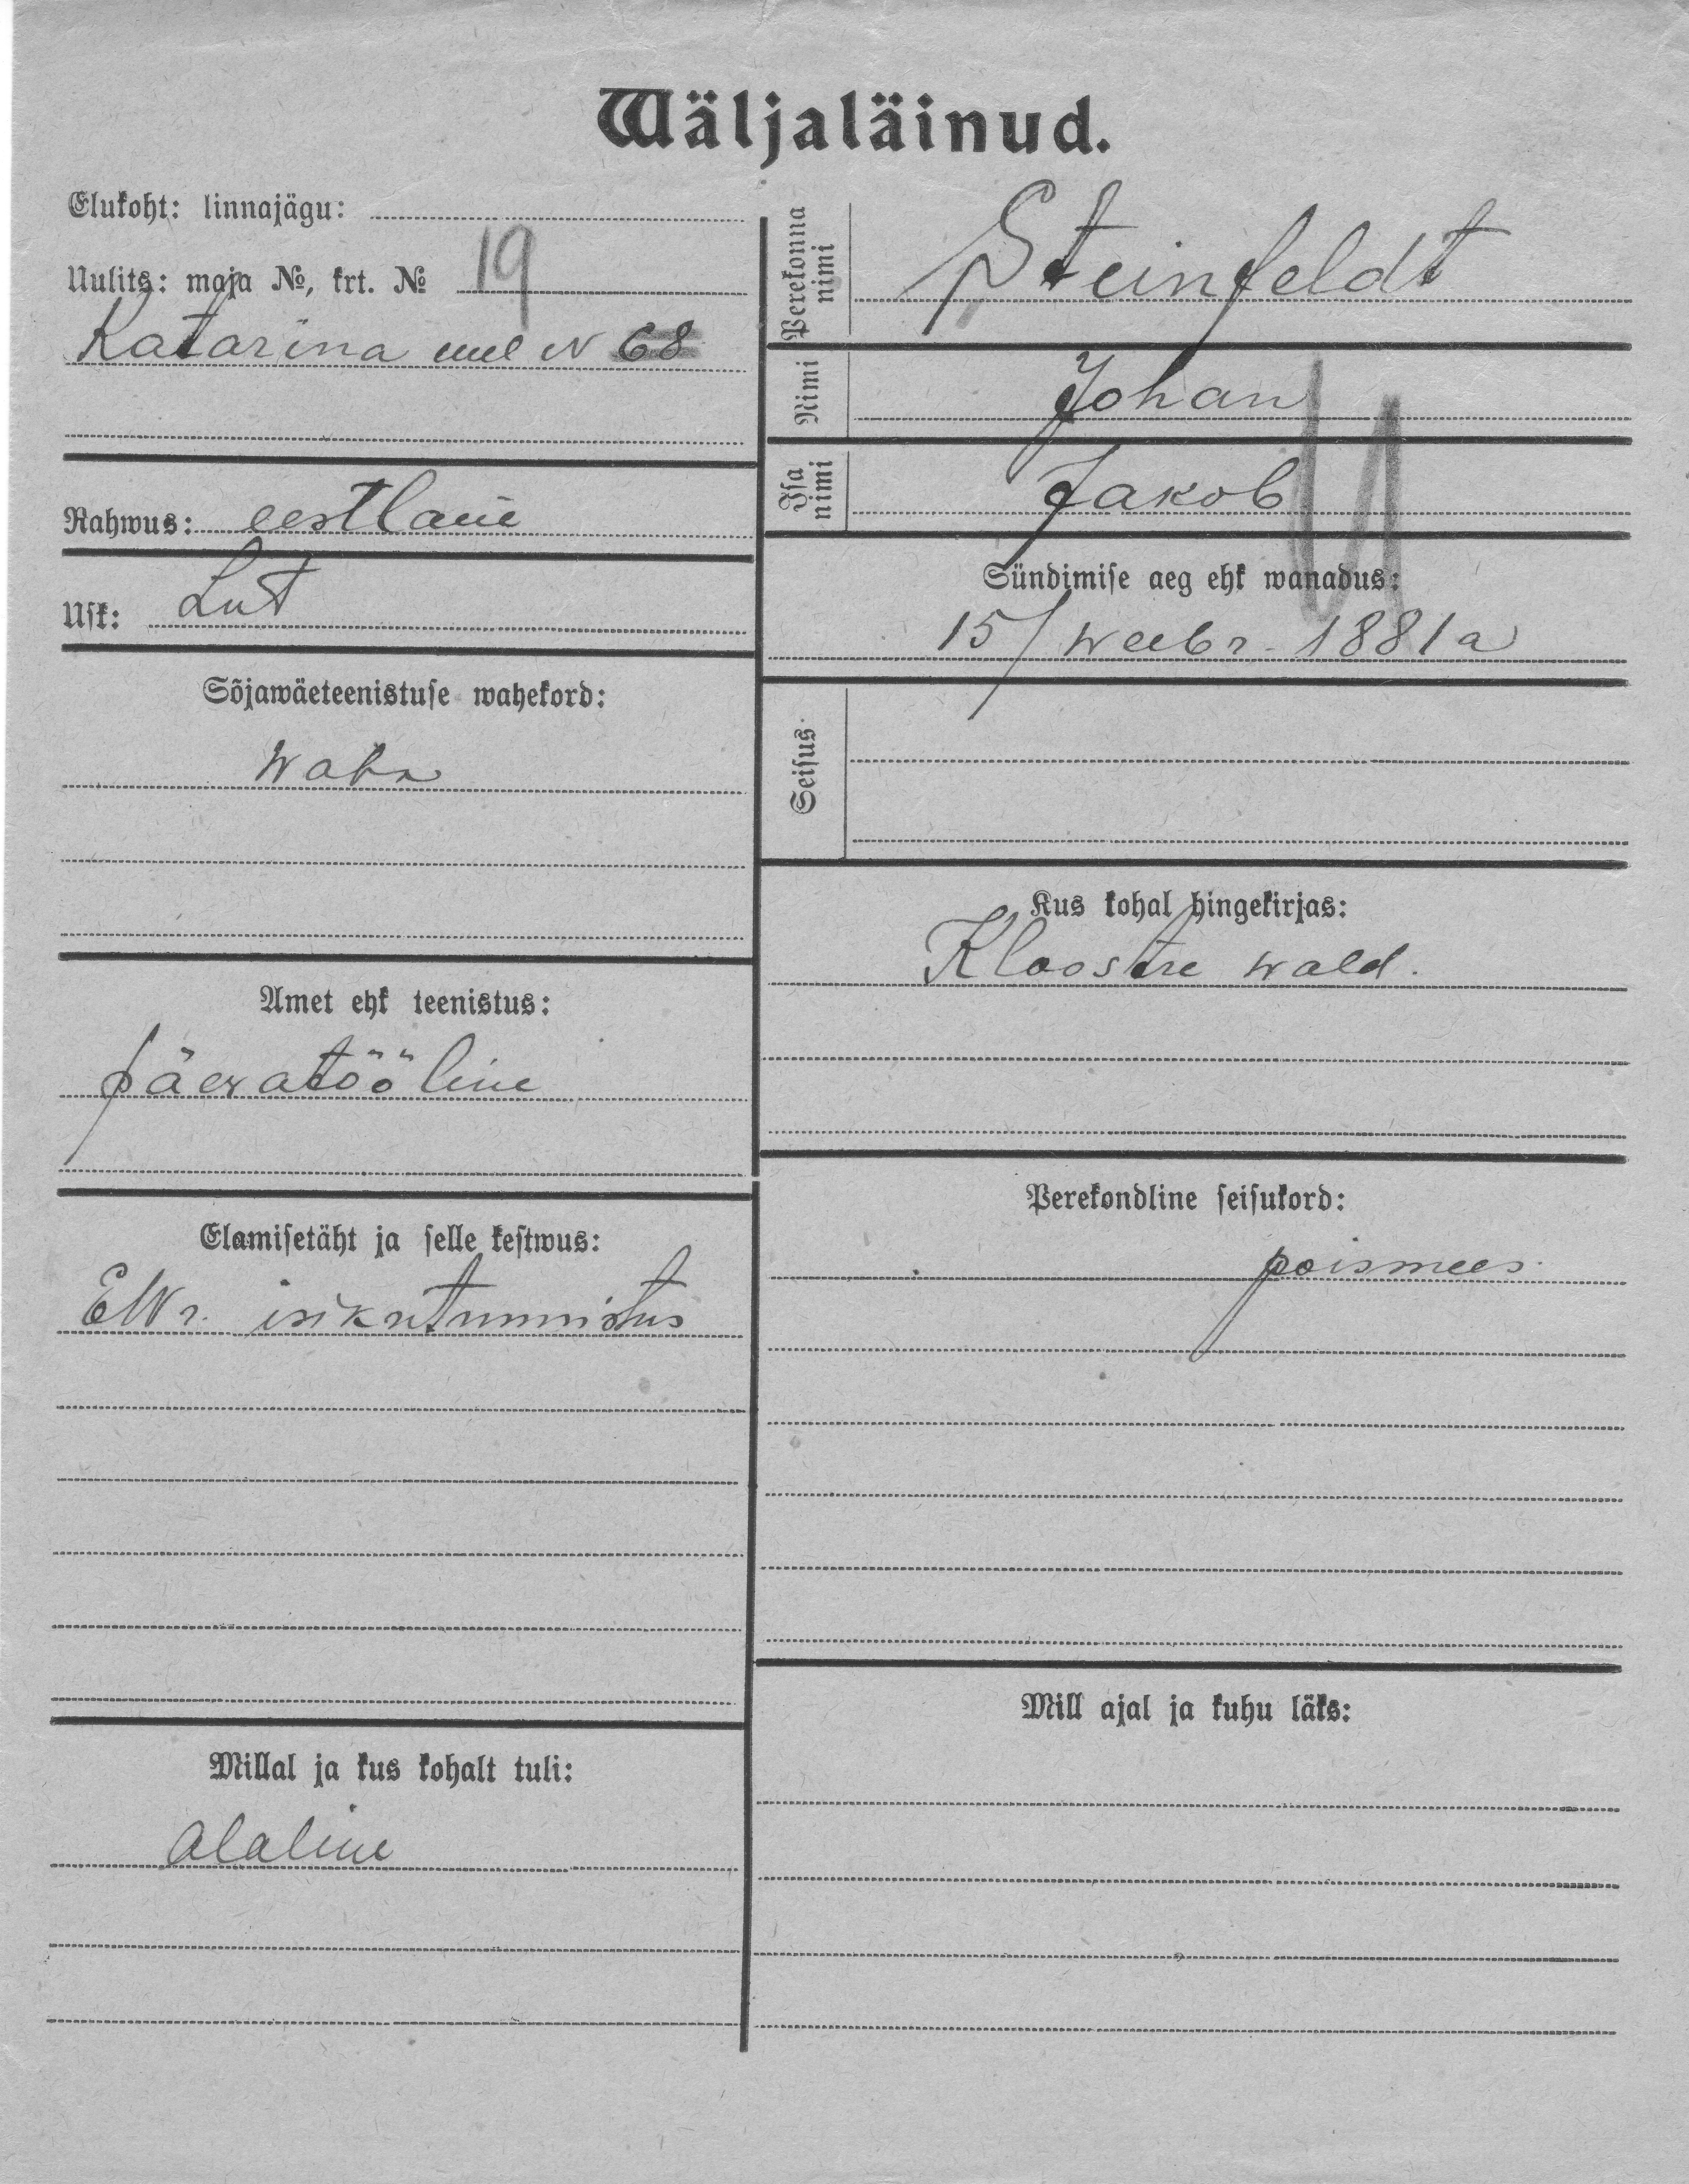 Wäljaläinud.
Elukoht: linnajägu:
Uulits: maja №, krt. № 19
Katarina uul N 68
Rahwus: eestlane
Usk: Lut
Sõjawäeteenistuse wahekord:
waba
Amet ehk teenistus:
päewatööline
Elamisetäht ja selle kestwus:
EWr. isikutunnistus
Millal ja kus kohalt tuli:
alaline
Perekonna nimi
Steinfeldt
Nimi
Johan
Isa nimi
Jakob
Sündimise aeg ehk wanadus:
15/ weebr. 1881 a
Seisus
Kus kohal hingekirjas:
Kloostre wald.
Perekondline seisukord:
poismees
Mill ajal ja kuhu läks: